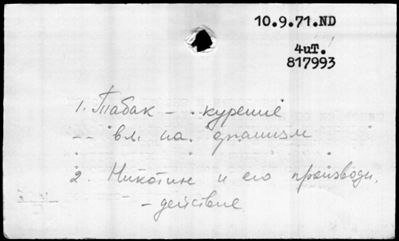 10.9.71.ND
4иТ.
817993
1. Табак - курение
-- вл. на организм
2. Никотин и его производн.
- действие